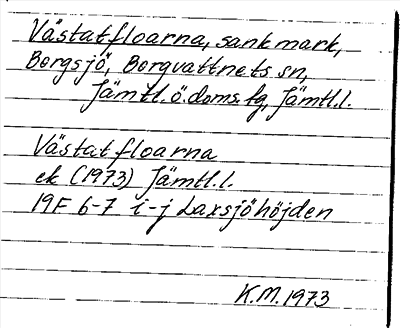 Västatfloarna, sankmark,
Borgsjö, Borgvattnets sn,
Jämtl. ö. doms. fg, Jämtl.l.
Västatfloarna
ek (1973) Jämtl.l.
19F 6-7 i-j Laxsjöhöjden
K.M. 1973